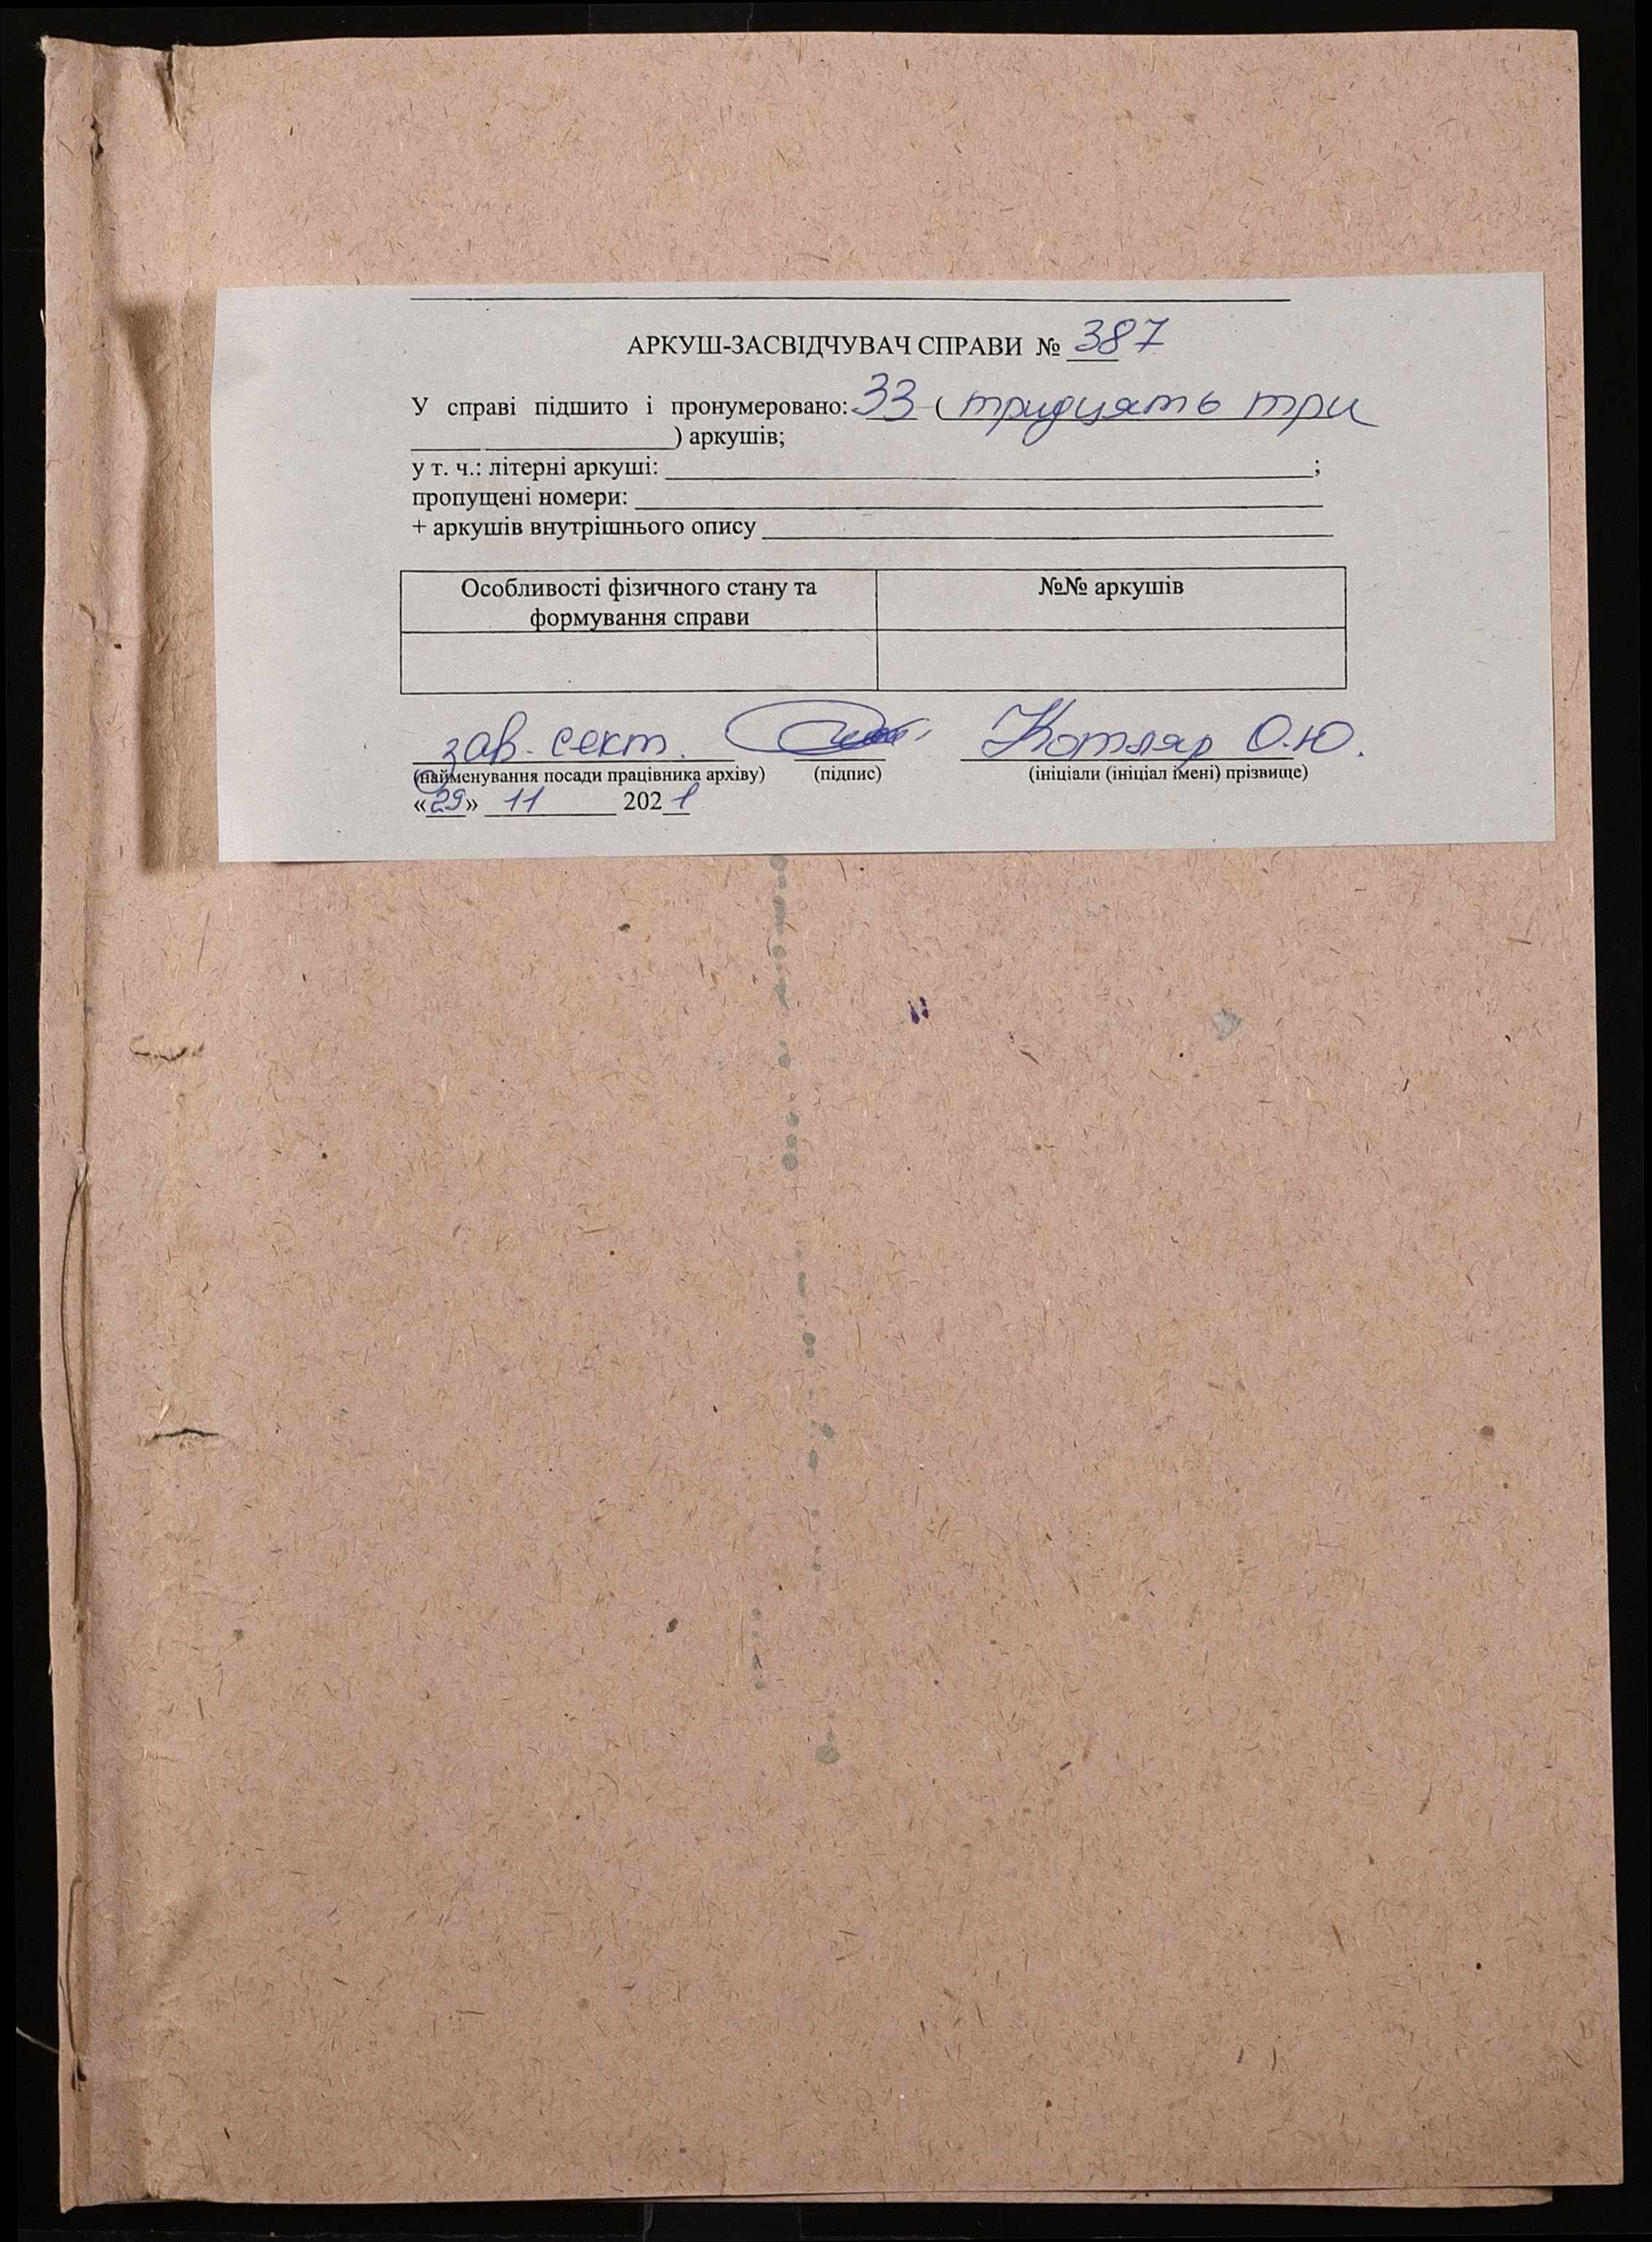 АРКУШ-ЗАСВІДЧУВАЧ СПРАВИ № 387
У справі підшито і пронумеровано: 33 ( тридцять три
) аркушів;
у т. ч.: літерні аркуші: ;
пропущені номери:
+ аркушів внутрішнього опису
Особливості фізичного стану та
формування справи
№№ аркушів
зав. сект. Котляр О.Ю.
(найменування посади працівника архіву) (підпис) (ініціали (ініціал імені) прізвище)
«29» 11 2021